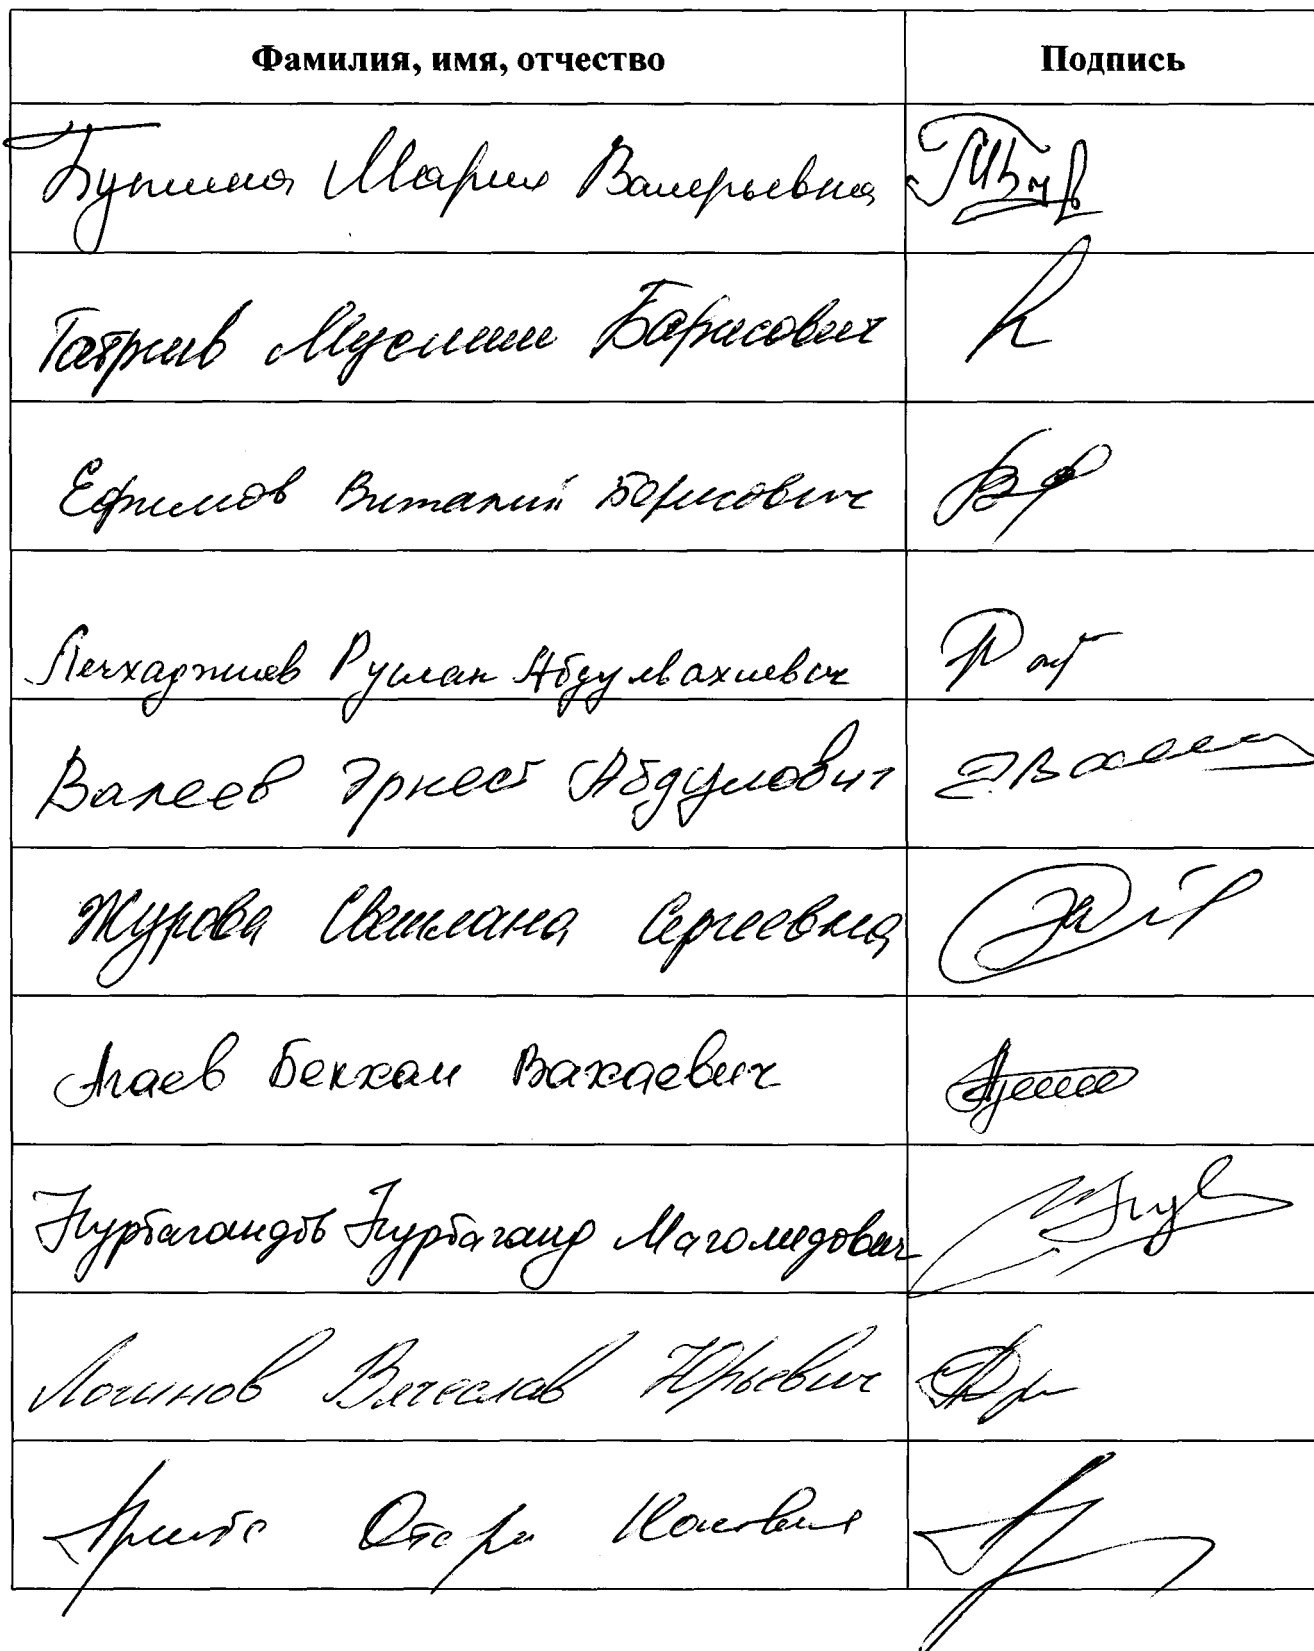 Фамилия, имя, отчество Подпись
Бутина Мария Валерьевна
Татриев Муслим Барисович
Ефимов Виталий Борисович
Лечхаджиев Руслан Абдулвахиевич
Валеев Эрнест Абдулович
Журова Светлана Сергеевна
Агаев Бекхан Вахаевич
Нурбагандов Нурбаганд Магомедович
Логинов Вячеслав Юрьевич
Аршба Отари Ионович